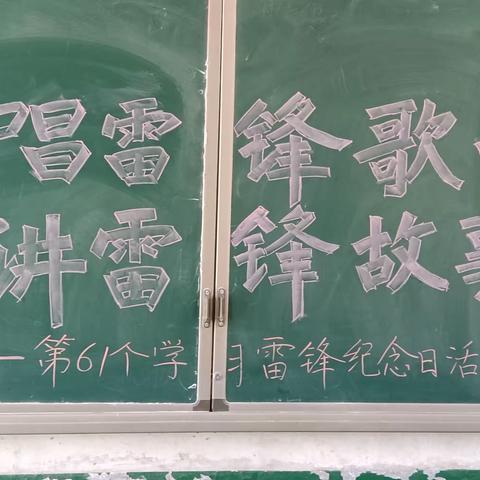 唱雷锋歌
讲雷锋故事
一第61个学习雷锋纪念日活